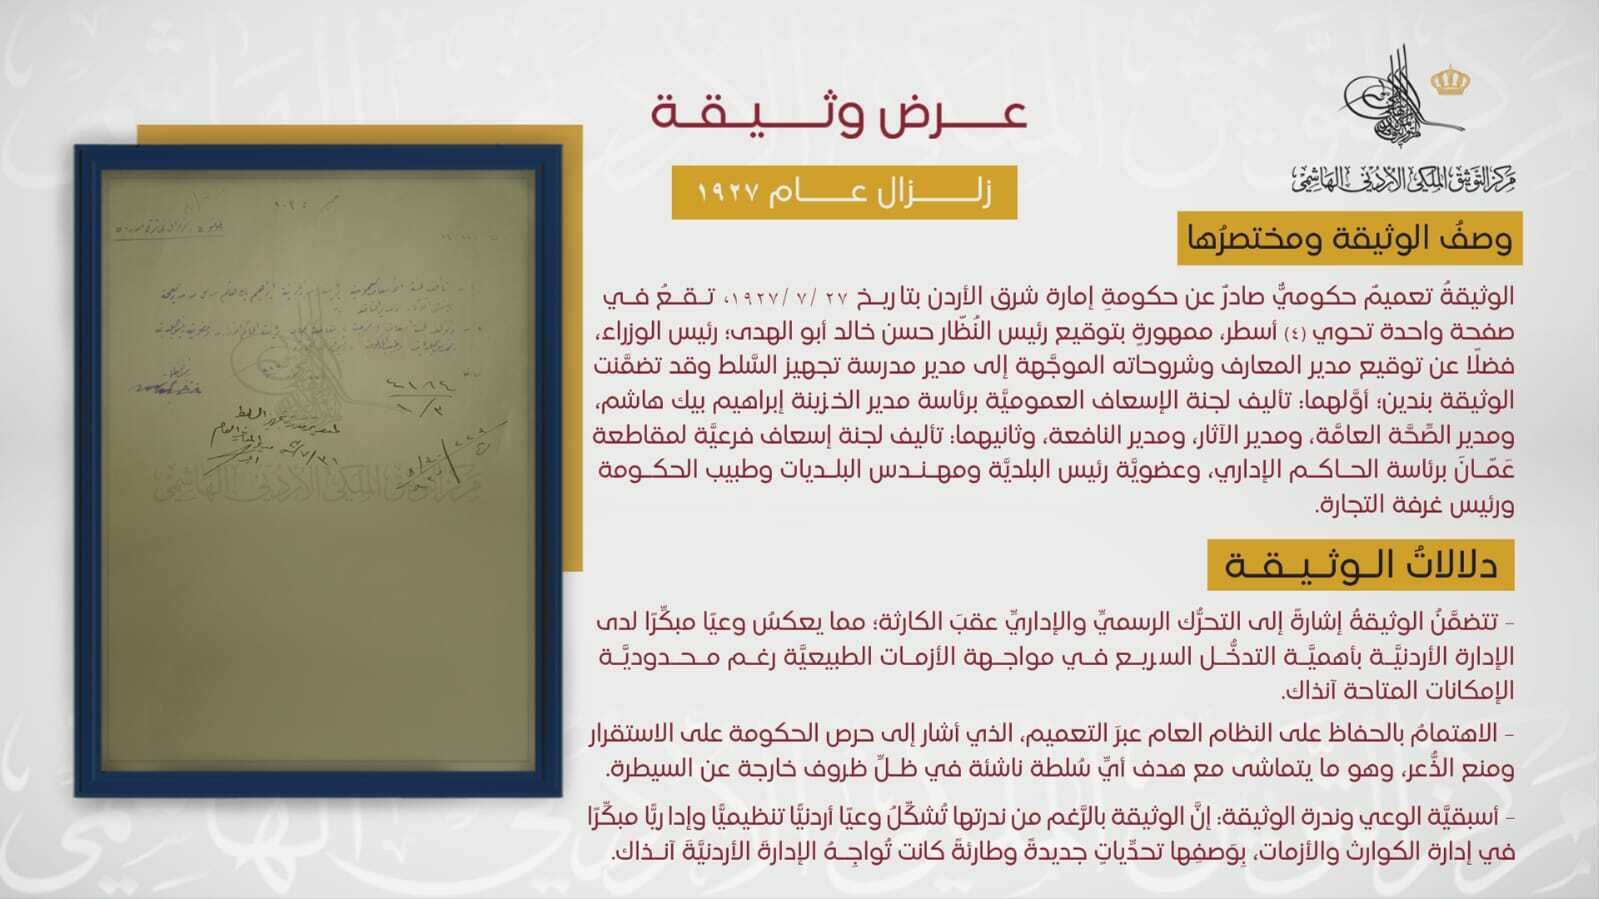 عرض وثيقة
زلزال عام ١٩٢٧
مركز التوثيق الملكي الأردني الهاشمي
وصفُ الوثيقة ومختصرُها
الوثيقةُ تعميمٌ حكوميٌّ صادرٌ عن حكومةِ إمارة شرق الأردن بتاريخ ٢٧ /٧ /١٩٢٧، تقعُ في
صفحة واحدة تحوي (٤) أسطر، ممهورةٍ بتوقيع رئيس النُظّار حسن خالد أبو الهدى؛ رئيس الوزراء،
فضلًا عن توقيع مدير المعارف وشروحاته الموجَّهة إلى مدير مدرسة تجهيز السَّلط وقد تضمَّنت
الوثيقة بندين؛ أوَّلهما: تأليف لجنة الإسعاف العموميَّة برئاسة مدير الخزينة إبراهيم بيك هاشم،
ومدير الصِّحَّة العامَّة، ومدير الآثار، ومدير النافعة، وثانيهما: تأليف لجنة إسعاف فرعيَّة لمقاطعة
عَمّانَ برئاسة الحاكم الإداري، وعضويَّة رئيس البلديَّة ومهندس البلديات وطبيب الحكومة
ورئيس غرفة التجارة.
دلالاتُ الوثيقة
- تتضمَّنُ الوثيقةُ إشارةً إلى التحرُّك الرسميِّ والإداريِّ عقبَ الكارثة؛ مما يعكسُ وعيًا مبكِّرًا لدى
الإدارة الأردنيَّة بأهميَّة التدخُّل السريع في مواجهة الأزمات الطبيعيَّة رغم محدوديَّة
الإمكانات المتاحة آنذاك.
- الاهتمامُ بالحفاظ على النظام العام عبرَ التعميم، الذي أشار إلى حرص الحكومة على الاستقرار
ومنع الذُّعر، وهو ما يتماشى مع هدف أيِّ سُلطة ناشئة في ظلِّ ظروف خارجة عن السيطرة.
- أسبقيَّة الوعي وندرة الوثيقة: إنَّ الوثيقة بالرَّغم من ندرتها تُشكِّلُ وعيًا أردنيًّا تنظيميًّا وإداريًّا مبكِّرًا
في إدارة الكوارث والأزمات، بِوَصفِها تحدِّياتٍ جديدةً وطارئةً كانت تُواجِهُ الإدارةَ الأردنيَّةَ آنذاك.